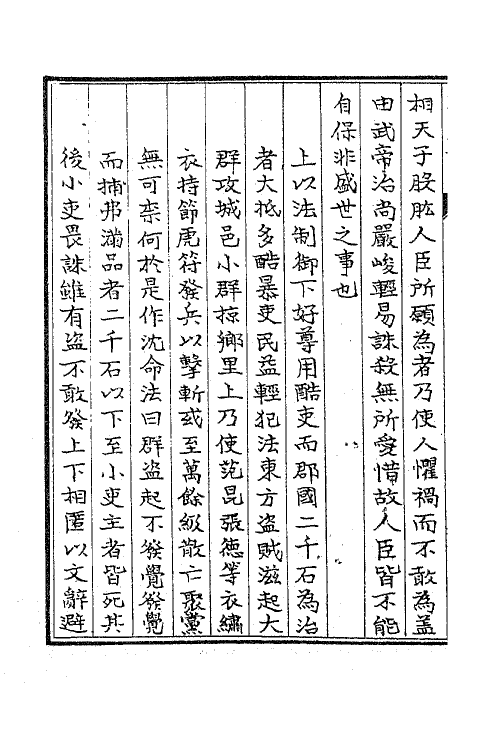 相天子股肱人臣所願為者乃使人懼禍而不敢為盖
由武帝治尚嚴峻輕易誅殺無所愛惜故人臣皆不能
自保非盛世之事也
上以法制御下好尊用酷吏而郡國二千石為治
者大抵多酷暴吏民益輕犯法東方盗賊滋起大
群攻城邑小群掠鄉里上乃使范昆張徳等衣繡
衣持節虎符發兵以擊斬或至萬餘級散亡聚黨
無可柰何於是作沈命法曰群盗起不發覺發覺
而捕弗滿品者二千石以下至小吏主者皆死其
後小吏畏誅雖有盗不敢發上下相匿以文辭避